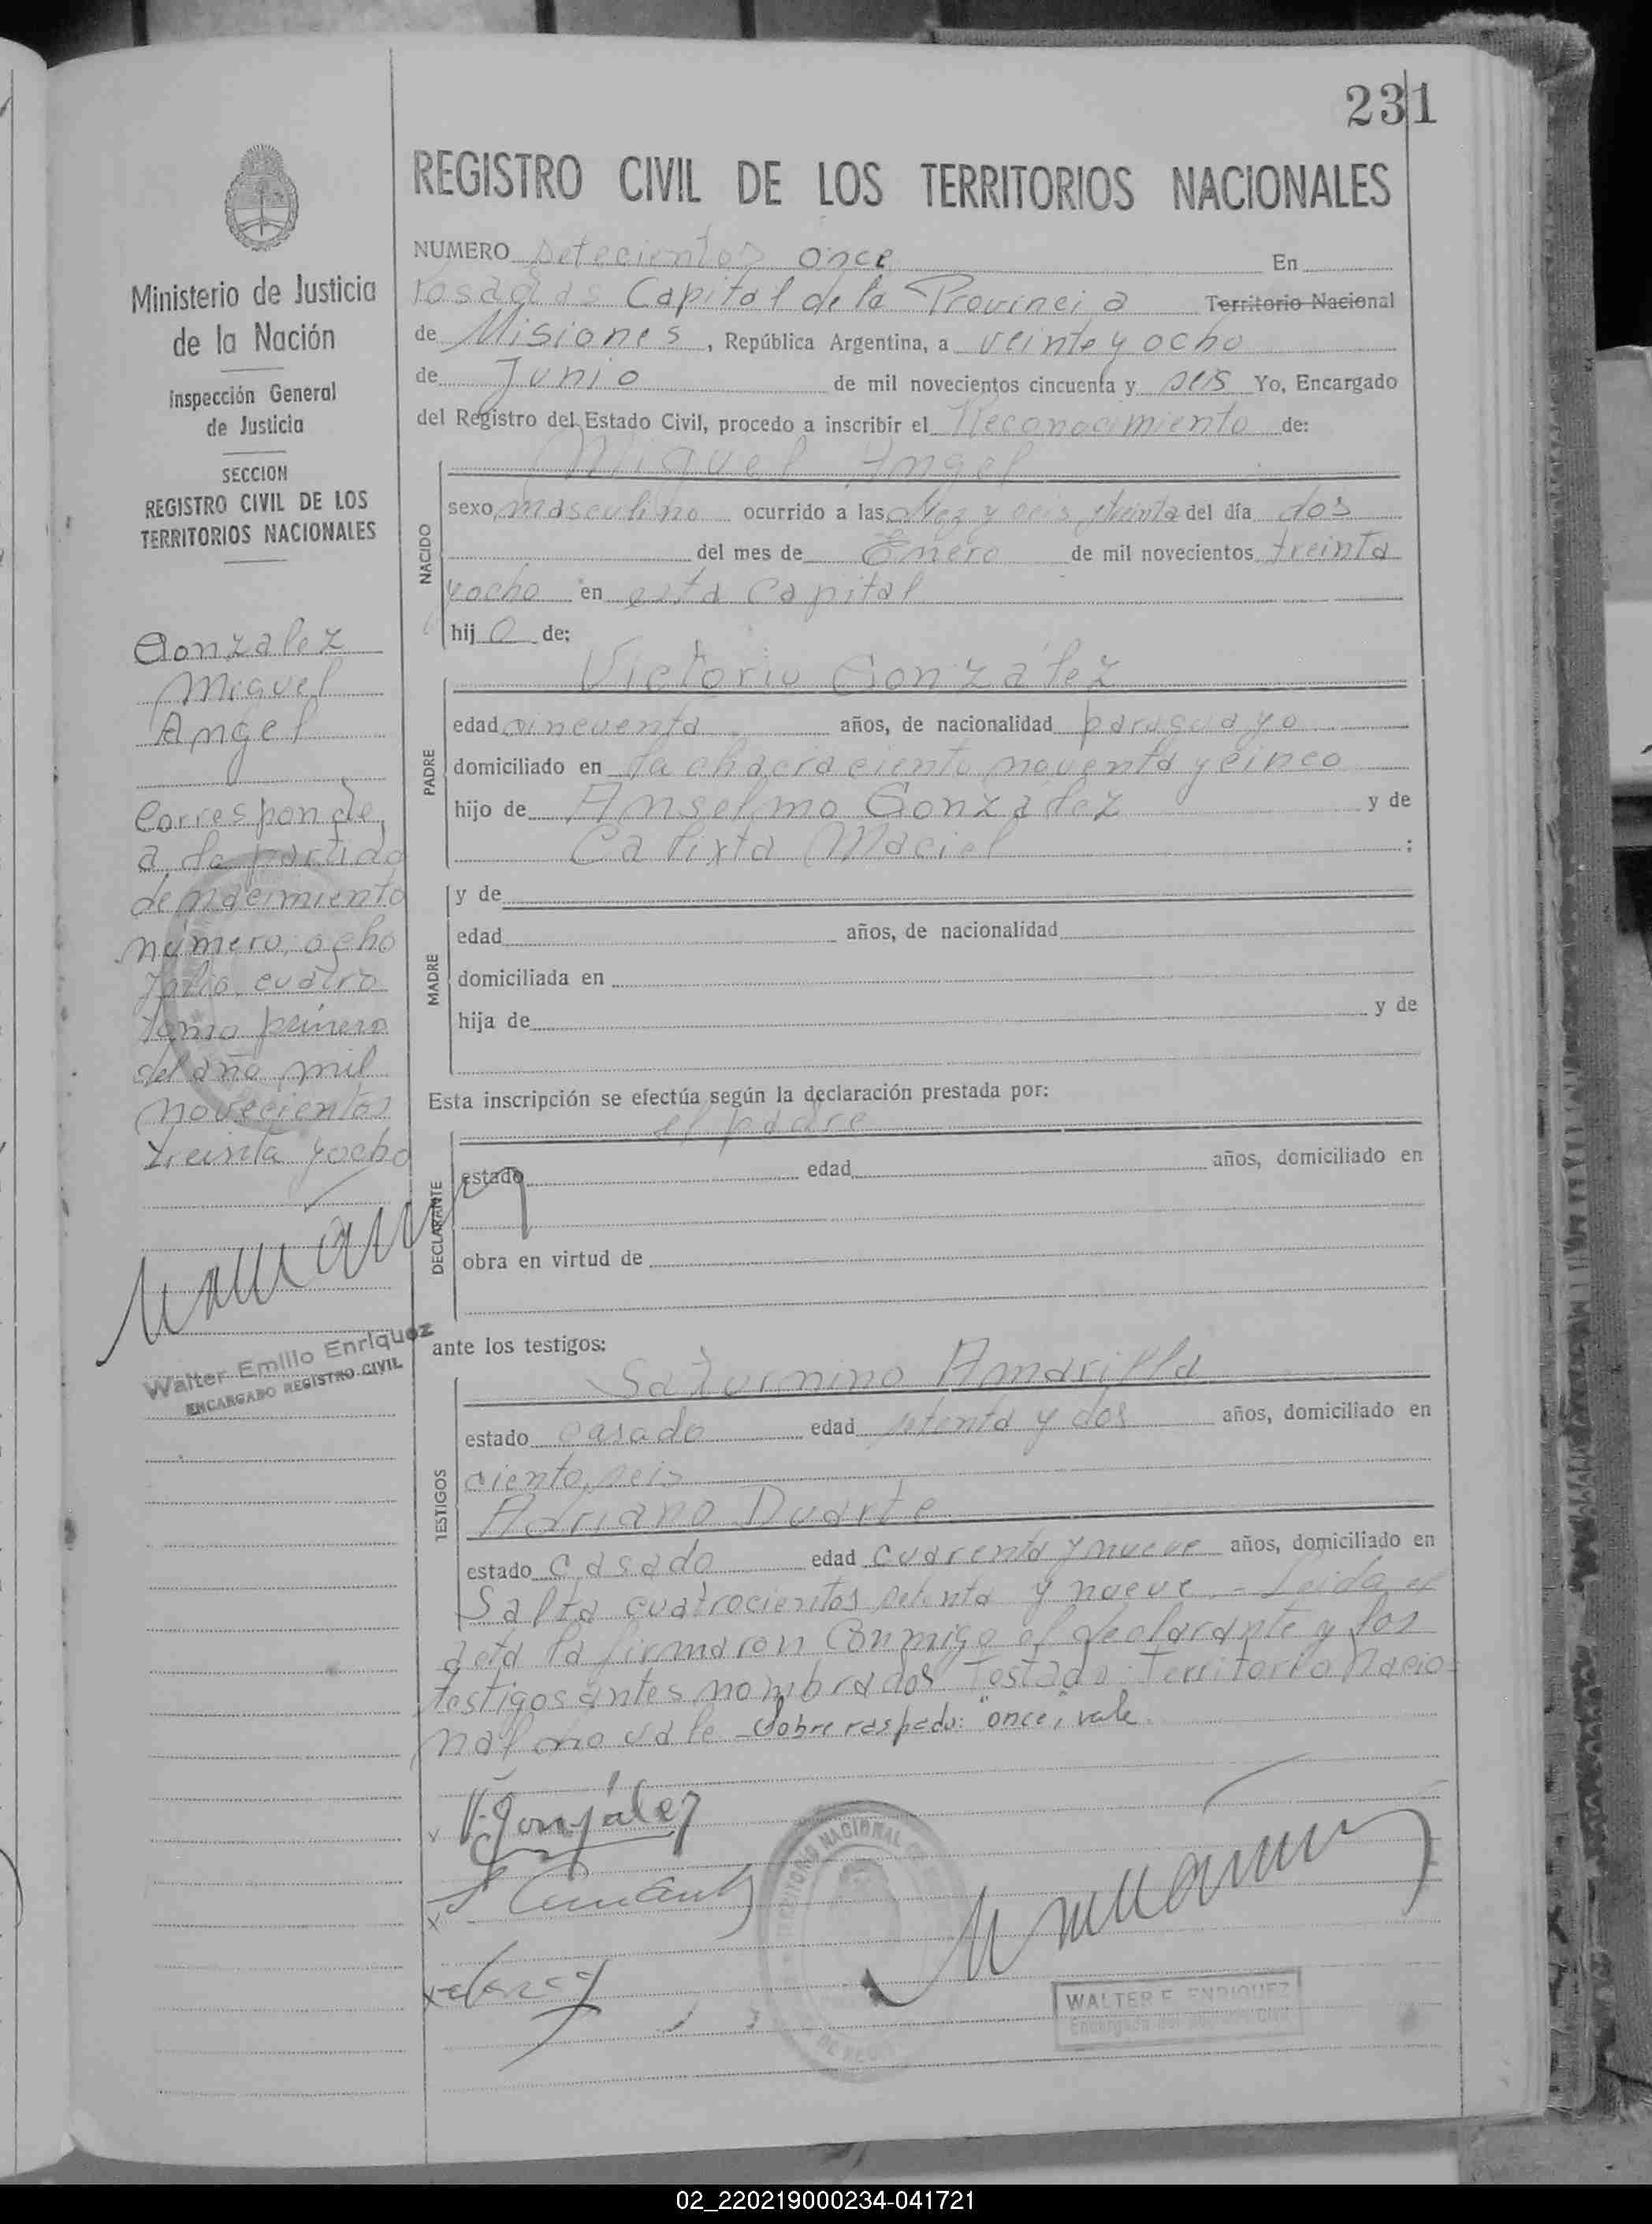 231
REGISTRO CIVIL DE LOS TERRITORIOS NACIONALES
NUMERO setecientos once En
Posadas Capital de la Provincia Territorio Nacional
de Misiones, República Argentina, a veinte y ocho
de Junio de mil novecientos cincuenta y seis Yo, Encargado
del Registro del Estado Civil, procedo a inscribir el Reconocimiento de:
Miguel Angel
NACIDO
sexo masculino ocurrido a las diez y seis treinta del día dos
del mes de Enero de mil novecientos treinta
y ocho en esta Capital
hijo de:
Victorio González
PADRE
edad cincuenta años, de nacionalidad paraguayo
domiciliado en la chacra ciento noventa y cinco
hijo de Anselmo González y de
Calixta Maciel ;
MADRE
y de
edad años, de nacionalidad
domiciliada en
hija de y de
Esta inscripción se efectúa según la declaración prestada por:
el padre
DECLARANTE
estado edad años, domiciliado en
obra en virtud de
ante los testigos:
Saturnino Amarilla
TESTIGOS
estado casado edad setenta y dos años, domiciliado en
ciento seis
Adriano Duarte
estado casado edad cuarenta y nueve años, domiciliado en
Salta cuatrocientos setenta y nueve.- Leida el
acta la firmaron conmigo el declarante y los
testigos antes nombrados Testado: Territorio Nacio-
nal no vale Sobre raspado: "once", vale.
V. González
TERRITORIO NACIONAL DE
WALTER E. ENRIQUEZ
Encargado del Registro Civil
Ministerio de Justicia
de la Nación
Inspección General
de Justicia
SECCION
REGISTRO CIVIL DE LOS
TERRITORIOS NACIONALES
Gonzalez
Miguel
Angel
Corresponde
a la partida
de nacimiento
número ocho
folio cuatro
tomo primero
del año mil
novecientos
treinta y ocho
Walter Emilio Enriquez
ENCARGADO REGISTRO CIVIL
02_220219000234-041721